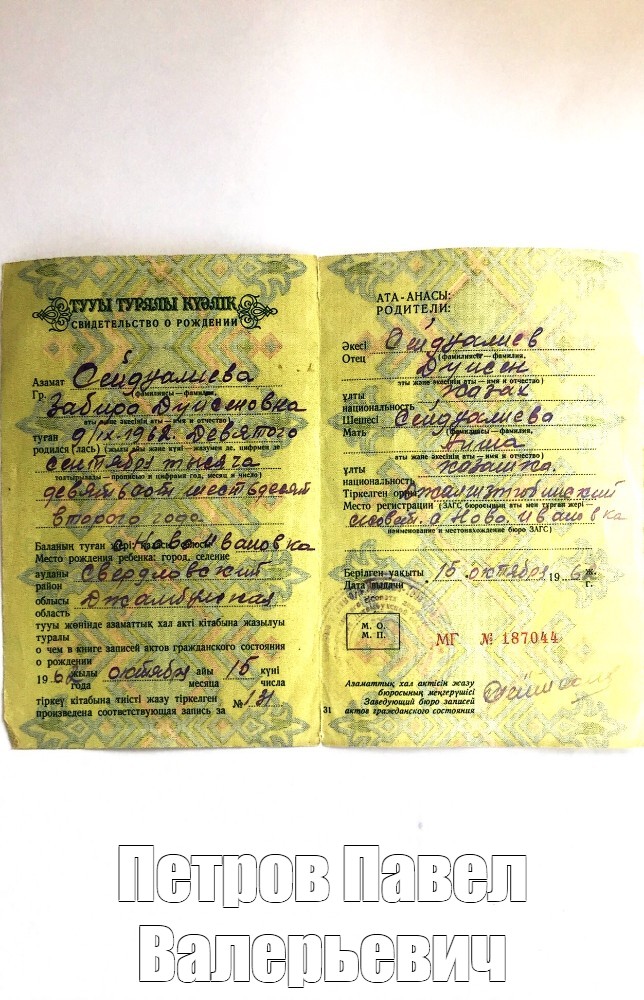 ТУУЫ ТУРАЛЫ КУӘЛІК
СВИДЕТЕЛЬСТВО О РОЖДЕНИИ
Азамат Сейдуалиева
Гр. (фамилиясы — фамилия)
Забира Дуйсеновна
аты және әкесінің аты — имя и отчество)
туған 9/IX-1962. Девятого
родился (лась) (жылы айы және күні — жазумен де, цифрмен де
сентября тысяча
толтырылады — прописью и цифрами год, месяц и число)
девятьсот шестьдесят
второго года
Баланың туған жері: с. Ново-Ивановка
Место рождения ребенка: город, селение
ауданы Свердловский
район
облысы Джамбулская
область
тууы жөнінде азаматтық хал акті кітабына жазылуы
туралы
о чем в книге записей актов гражданского состояния
о рождении
1962 жылы октября айы 15 күні
года месяца числа
тіркеу кітабына тиісті жазу тіркелген № 131
произведена соответствующая запись за
АТА-АНАСЫ:
РОДИТЕЛИ:
Әкесі Сейдуалиев
Отец (фамилиясы — фамилия,
Дуйсен
аты және әкесінің аты — имя и отчество)
ұлты казах
национальность
Шешесі Сейдуалиева
Мать (фамилиясы — фамилия,
аты және әкесінің аты — имя и отчество)
ұлты казашка.
национальность
Тіркелген орны
Место регистрации (ЗАГС бюросының аты мен тұрған жері —
с/совет. с Ново. Ивановка
наименование и местонахождение бюро ЗАГС)
Берілген уақыты 15 октября 1962 ж.
Дата выдачи г.
М. О.
М. П.
МГ № 187044
Азаматтық хал актісін жазу
бюросының меңгерушісі
Заведующий бюро записей
актов гражданского состояния
31
Петров Павел
Валерьевич